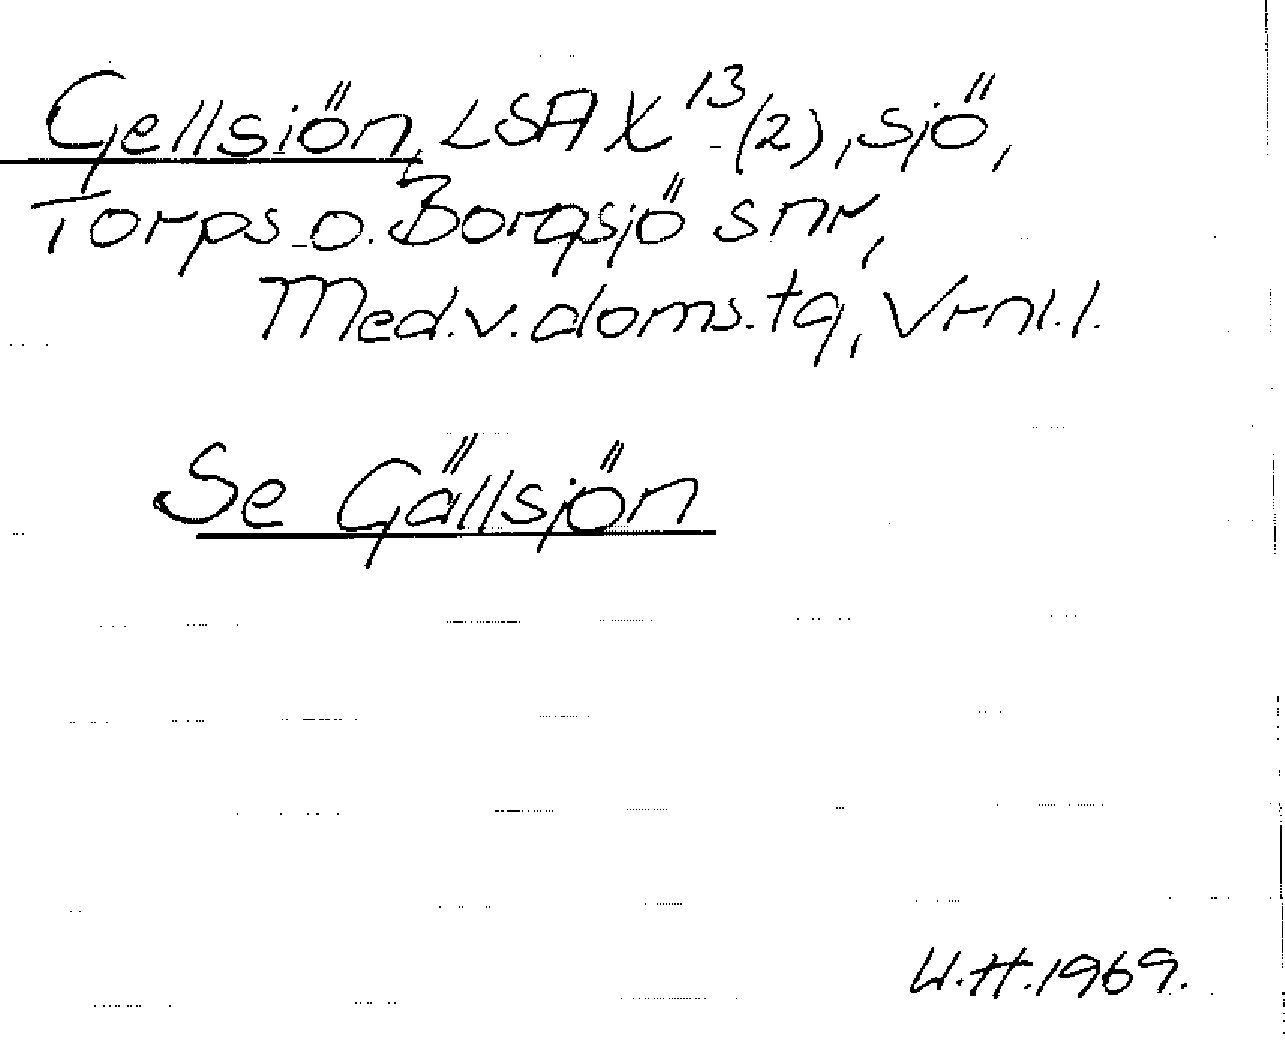 Gellsiön, LSA X 13 (2), sjö,
Torps o. Borgsjö snr,
Med.v. doms. tg, Vrnl.l.
Se Gällsjön
U.H. 1969.